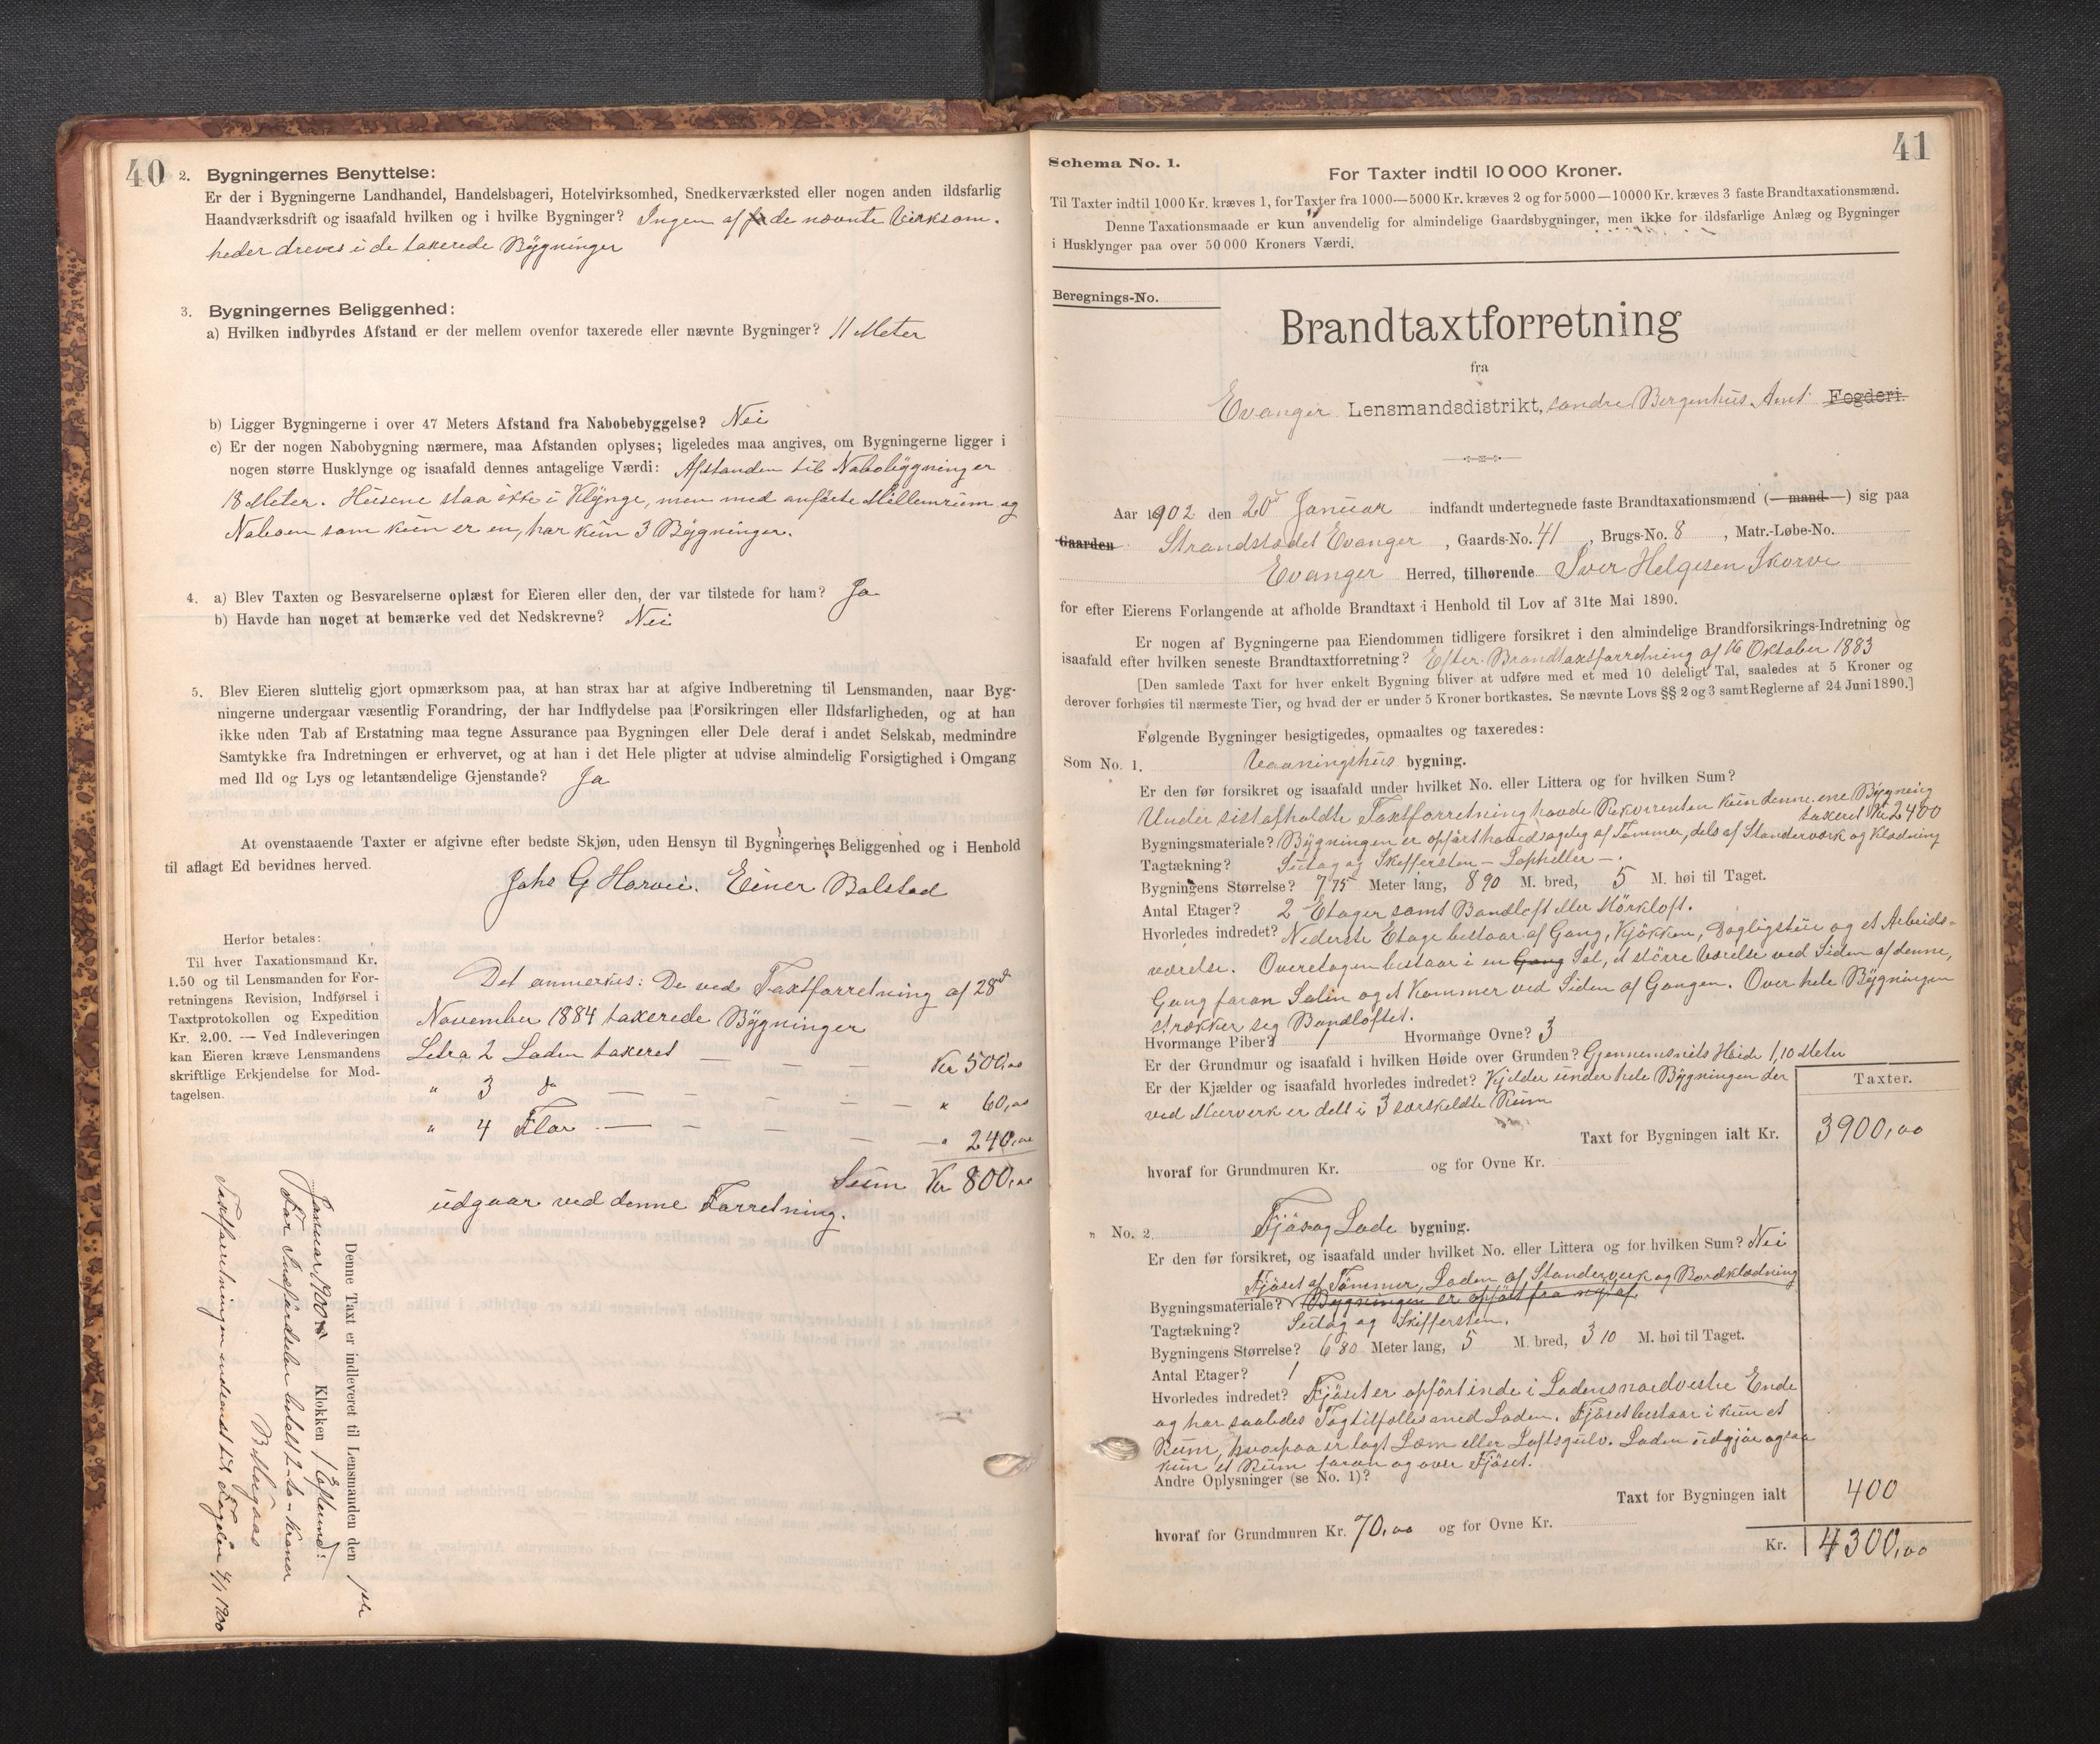 40
2. Bygningernes Benyttelse:
Er der i Bygningerne Landhandel, Handelsbageri, Hotelvirksomhed, Snedkerværksted eller nogen anden ildsfarlig
Haandværksdrift og isaafald hvilken og i hvilke Bygninger? Ingen af de nævnte Virksom-
heder dreves i de taxerede Bygninger
3. Bygningernes Beliggenhed:
a) Hvilken indbyrdes Afstand er der mellem ovenfor taxerede eller nævnte Bygninger? 11 Meter
b) Ligger Bygningerne i over 47 Meters Afstand fra Nabobebyggelse? Nei
c) Er der nogen Nabobygning nærmere, maa Afstanden oplyses; ligeledes maa angives, om Bygningerne ligger i
nogen større Husklynge og isaafald dennes antagelige Værdi: Afstanden til Nabobygning er
18 Meter. Husene staa ikke i Klynge, men med anførte Mellemrum og
Naboen som kun er en, har kun 3 Bygninger.
4. a) Blev Taxten og Besvarelserne oplæst for Eieren eller den, der var tilstede for ham? Ja
b) Havde han noget at bemærke ved det Nedskrevne? Nei
5. Blev Eieren sluttelig gjort opmærksom paa, at han strax har at afgive Indberetning til Lensmanden, naar Byg-
ningerne undergaar væsentlig Forandring, der har Indflydelse paa Forsikringen eller Ildsfarligheden, og at han
ikke uden Tab af Erstatning maa tegne Assurance paa Bygningen eller Dele deraf i andet Selskab, medmindre
Samtykke fra Indretningen er erhvervet, og at han i det Hele pligter at udvise almindelig Forsigtighed i Omgang
med Ild og Lys og letantændelige Gjenstande? Ja
At ovenstaaende Taxter er afgivne efter bedste Skjøn, uden Hensyn til Bygningernes Beliggenhed og i Henhold
til aflagt Ed bevidnes herved.
Johs G Horvei. Einer Bolstad
Herfor betales:
Til hver Taxationsmand Kr.
1.50 og til Lensmanden for For-
retningens Revision, Indførsel i
Taxtprotokollen og Expedition
Kr. 2.00. — Ved Indleveringen
kan Eieren kræve Lensmandens
skriftlige Erkjendelse for Mod-
tagelsen.
Det anmerkes: De ved Taxtforretning af 28d
November 1884 taxerede Bygninger
Litra 2 Laden taxeret — — — Kr 500,00
" 3 do — — — — — " 60,00
" 4 Flor — — — — — " 240,00
Sum Kr 800,00
udgaar ved denne Forretning.
Denne Taxt er indleveret til Lensmanden den 1ste
Januar 1900 Klokken 1 Efterm:
For Indførselen betalt 2 - to - Kroner
Taxtforretningen indsendt til Fogden 4/1 1900
41
Schema No. 1.
For Taxter indtil 10 000 Kroner.
Til Taxter indtil 1000 Kr. kræves 1, for Taxter fra 1000—5000 Kr. kræves 2 og for 5000—10000 Kr. kræves 3 faste Brandtaxationsmænd.
Denne Taxationsmaade er kun anvendelig for almindelige Gaardsbygninger, men ikke for ildsfarlige Anlæg og Bygninger
i Husklynger paa over 50 000 Kroners Værdi.
Beregnings-No.
Brandtaxtforretning
fra
Evanger Lensmandsdistrikt, søndre Bergenhus Amt Fogderi.
Aar 1902 den 20d Januar indfandt undertegnede faste Brandtaxationsmænd (— mand —) sig paa
Gaarden Strandstedet Evanger, Gaards-No. 41, Brugs-No. 8, Matr.-Løbe-No.
Evanger Herred, tilhørende Iver Helgesen Skorve
for efter Eierens Forlangende at afholde Brandtaxt i Henhold til Lov af 31te Mai 1890.
Er nogen af Bygningerne paa Eiendommen tidligere forsikret i den almindelige Brandforsikrings-Indretning og
isaafald efter hvilken seneste Brandtaxtforretning? Efter Brandtaxtforretning af 16 Oktober 1883
[Den samlede Taxt for hver enkelt Bygning bliver at udføre med et med 10 deleligt Tal, saaledes at 5 Kroner og
derover forhøies til nærmeste Tier, og hvad der er under 5 Kroner bortkastes. Se nævnte Lovs §§ 2 og 3 samt Reglerne af 24 Juni 1890.]
Følgende Bygninger besigtigedes, opmaaltes og taxeredes:
Som No. 1. Vaaningshus bygning.
Er den før forsikret og isaafald under hvilket No. eller Littera og for hvilken Sum?
Under sist afholdte Taxtforretning havde Rekvirenten kun denne ene Bygning
taxeret Kr 2400
Bygningsmateriale? Bygningen er opført hovedsagelig af Tømmer, dels af Standerværk og Klædning
Tagtækning? Sutag og Skiffersten –
Bygningens Størrelse? 7 75 Meter lang, 8 90 M. bred, 5 M. høi til Taget.
Antal Etager? 2 Etager samt Bandloft eller Mörkloft.
Hvorledes indredet? Nederste Etage bestaar af Gang, Kjøkken, Dagligstue og et Arbeids-
værelse. Overetagen bestaar i en Gang Sal, et större Værelse ved Siden af denne,
Gang foran Salen og et Kammer ved Siden af Gangen. Over hele Bygningen
strækker seg Bandloftet.
Hvormange Piber? 1 Hvormange Ovne? 3
Er der Grundmur og isaafald i hvilken Høide over Grunden? Gjennemsnits Høide 1,10 Meter
Er der Kjælder og isaafald hvorledes indredet? Kjelder under hele Bygningen der
ved Murverk er delt i 3 særskeldte Rum
Taxter.
Taxt for Bygningen ialt Kr. 3900,00
hvoraf for Grundmuren Kr. og for Ovne Kr.
" No. 2. Fjös og Lade bygning.
Er den før forsikret, og isaafald under hvilket No. eller Littera og for hvilken Sum? Nei
Fjöset af Tömmer, Laden af Standerverk og Bordklædning
Bygningsmateriale? Bygningen er opført fra ny af
Tagtækning? Sutag og Skiffersten.
Bygningens Størrelse? 6 80 Meter lang, 5 M. bred, 3 10 M. høi til Taget.
Antal Etager? 1
Hvorledes indredet? Fjöset er opført inde i Ladens nordvestre Ende
og har saaledes Tag tilfælles med Laden. Fjöset bestaar i kun et
Rum, hvorpaa er lagt Lem eller Loftsgulv. Laden udgjör ogsaa
kun et Rum foran og over Fjöset.
Andre Oplysninger (se No. 1)?
Taxt for Bygningen ialt 400
hvoraf for Grundmuren Kr. 70,00 og for Ovne Kr.
Kr. 4300,00